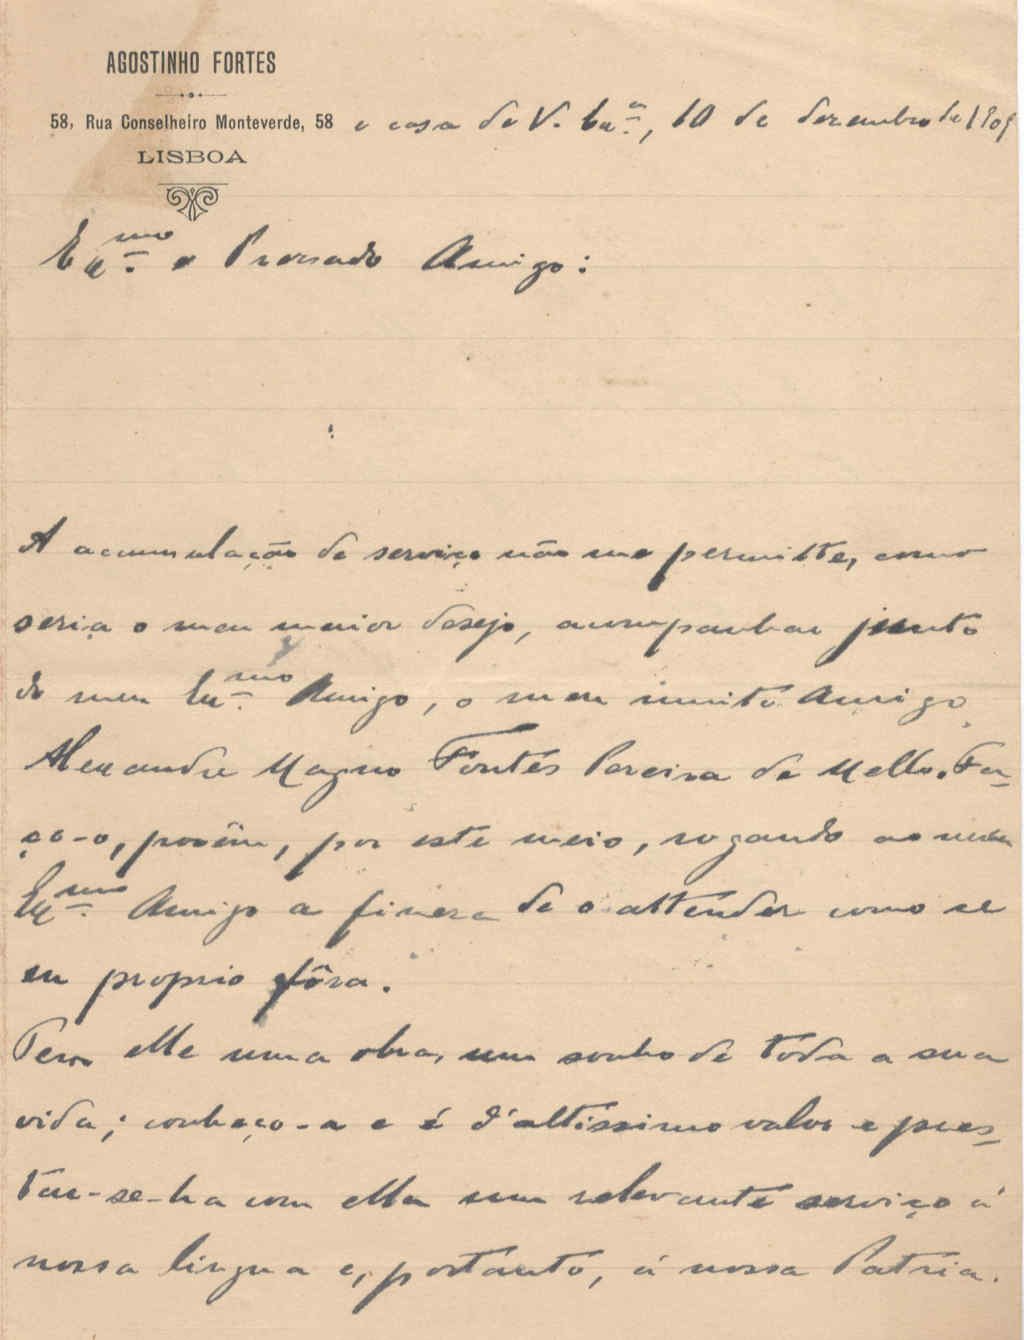 AGOSTINHO FORTES
58, Rua Conselheiro Monteverde, 58
LISBOA
e casa de V. Ex.ª, 10 de dezembro de 1909
Ex.mo e Presado Amigo:
A accumulação de serviço não me permitte, como
seria o meu maior desejo, acompanhar junto
do meu Ex.mo Amigo, o meu muito Amigo
Alexandre Magno Fontes Pereira de Mello. Fa-
ço-o, porêm, por este meio, rogando ao meu
Ex.mo Amigo a fineza de o attender como se
eu proprio fôra.
Tem elle uma obra, um sonho de toda a sua
vida; conheço-a e é d'altissimo valor e pres-
tar-se-ha com ella um relevante serviço á
nossa lingua e, portanto, á nossa Patria.